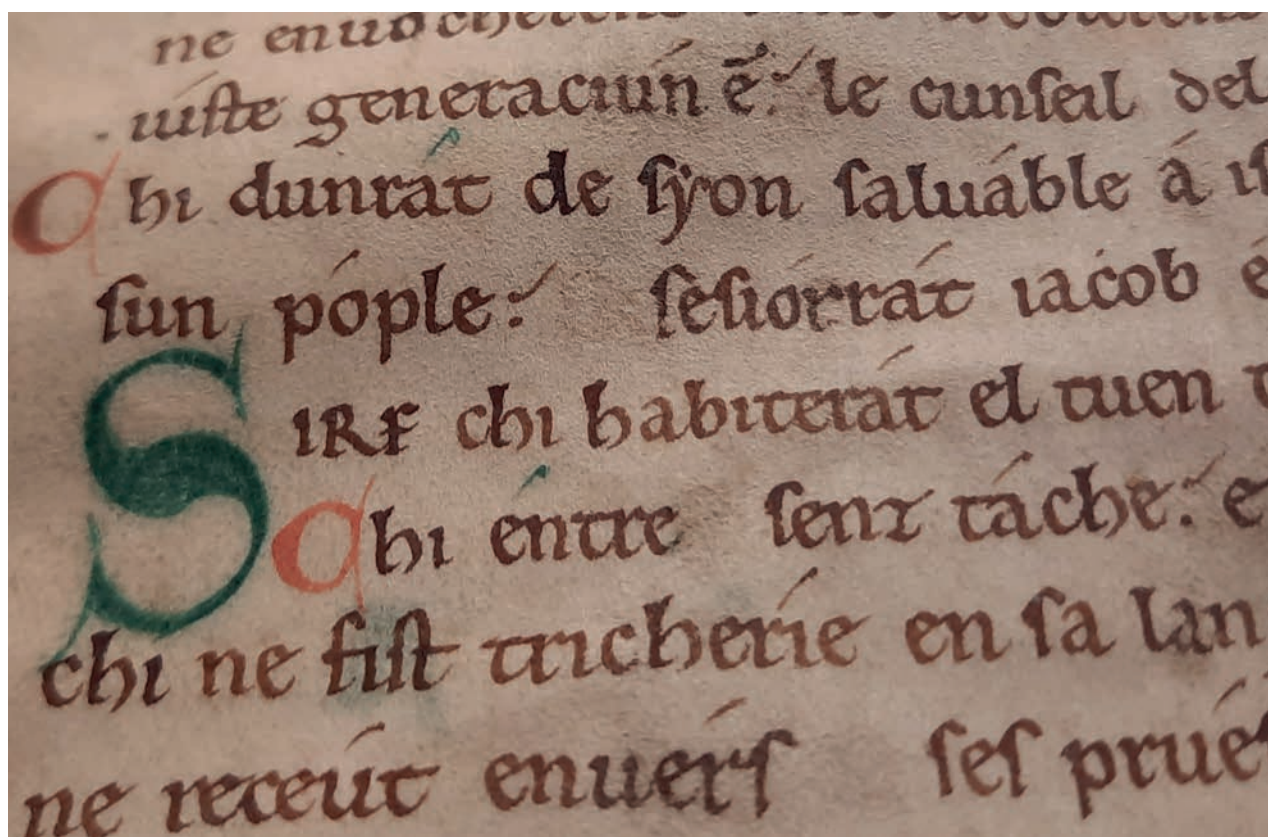 ne enuocherent
iuiste generaciun ē. le cunseil del
Chi dunrát de syon saluáble á
sun póple. sesiórrát iacób é
SIRE chi habiterát el tuen
Chi éntre senz táche. e
chi ne fist tricheríe en sa lan
ne receút enuérs ses prué